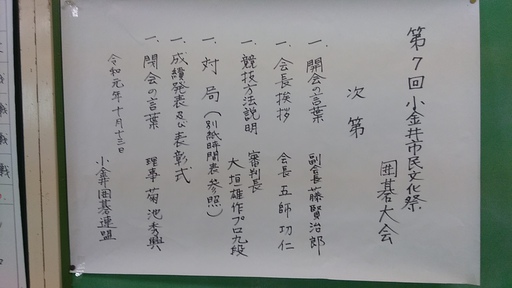 第7回 小金井市民文化祭
囲碁大会
次第
一. 開会の言葉 副会長 藤賢治郎
一. 会長挨拶 会長 五師功仁
一. 競技方法説明 審判長
大垣雄作プロ九段
一. 対局(別紙時間表参照)
一. 成績発表及び表彰式
一. 閉会の言葉 理事 菊池秀興
令和元年十月十三日
小金井囲碁連盟